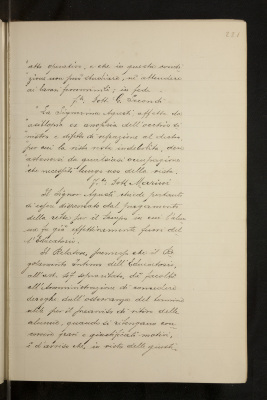 alto operativo, e che in queste condi
zioni non può studiare, nè attendere
ai lavori femminili; in fede.
Fto Dott. C. Secondi.
"La Signorina Agnati, affetta da
ascesso all'occhio si
nistro e difetto di rifrazione al destro
per cui la vista resta indebolita, deve
astenersi da qualsiasi occupazione
che necessiti lungo uso della vista.
Fto Dott. Marini
Il Signor Agnati chiede pertanto
di essere dispensato dal pagamento
della retta per il tempo in cui l'alun
na fu già effettivamente fuori del
l'Educatorio.
Il Relatore, premesso che il Re
golamento Interno dell'Educatorio,
all'art. sopracitato dà facoltà
all'Amministrazione di concedere
deroghe dall'osservanza del termine
utile per il preavviso di ritiro delle
alunne, quando si ritengano con
corrervi gravi e giustificati motivi,
è d'avviso che, in vista delle questi